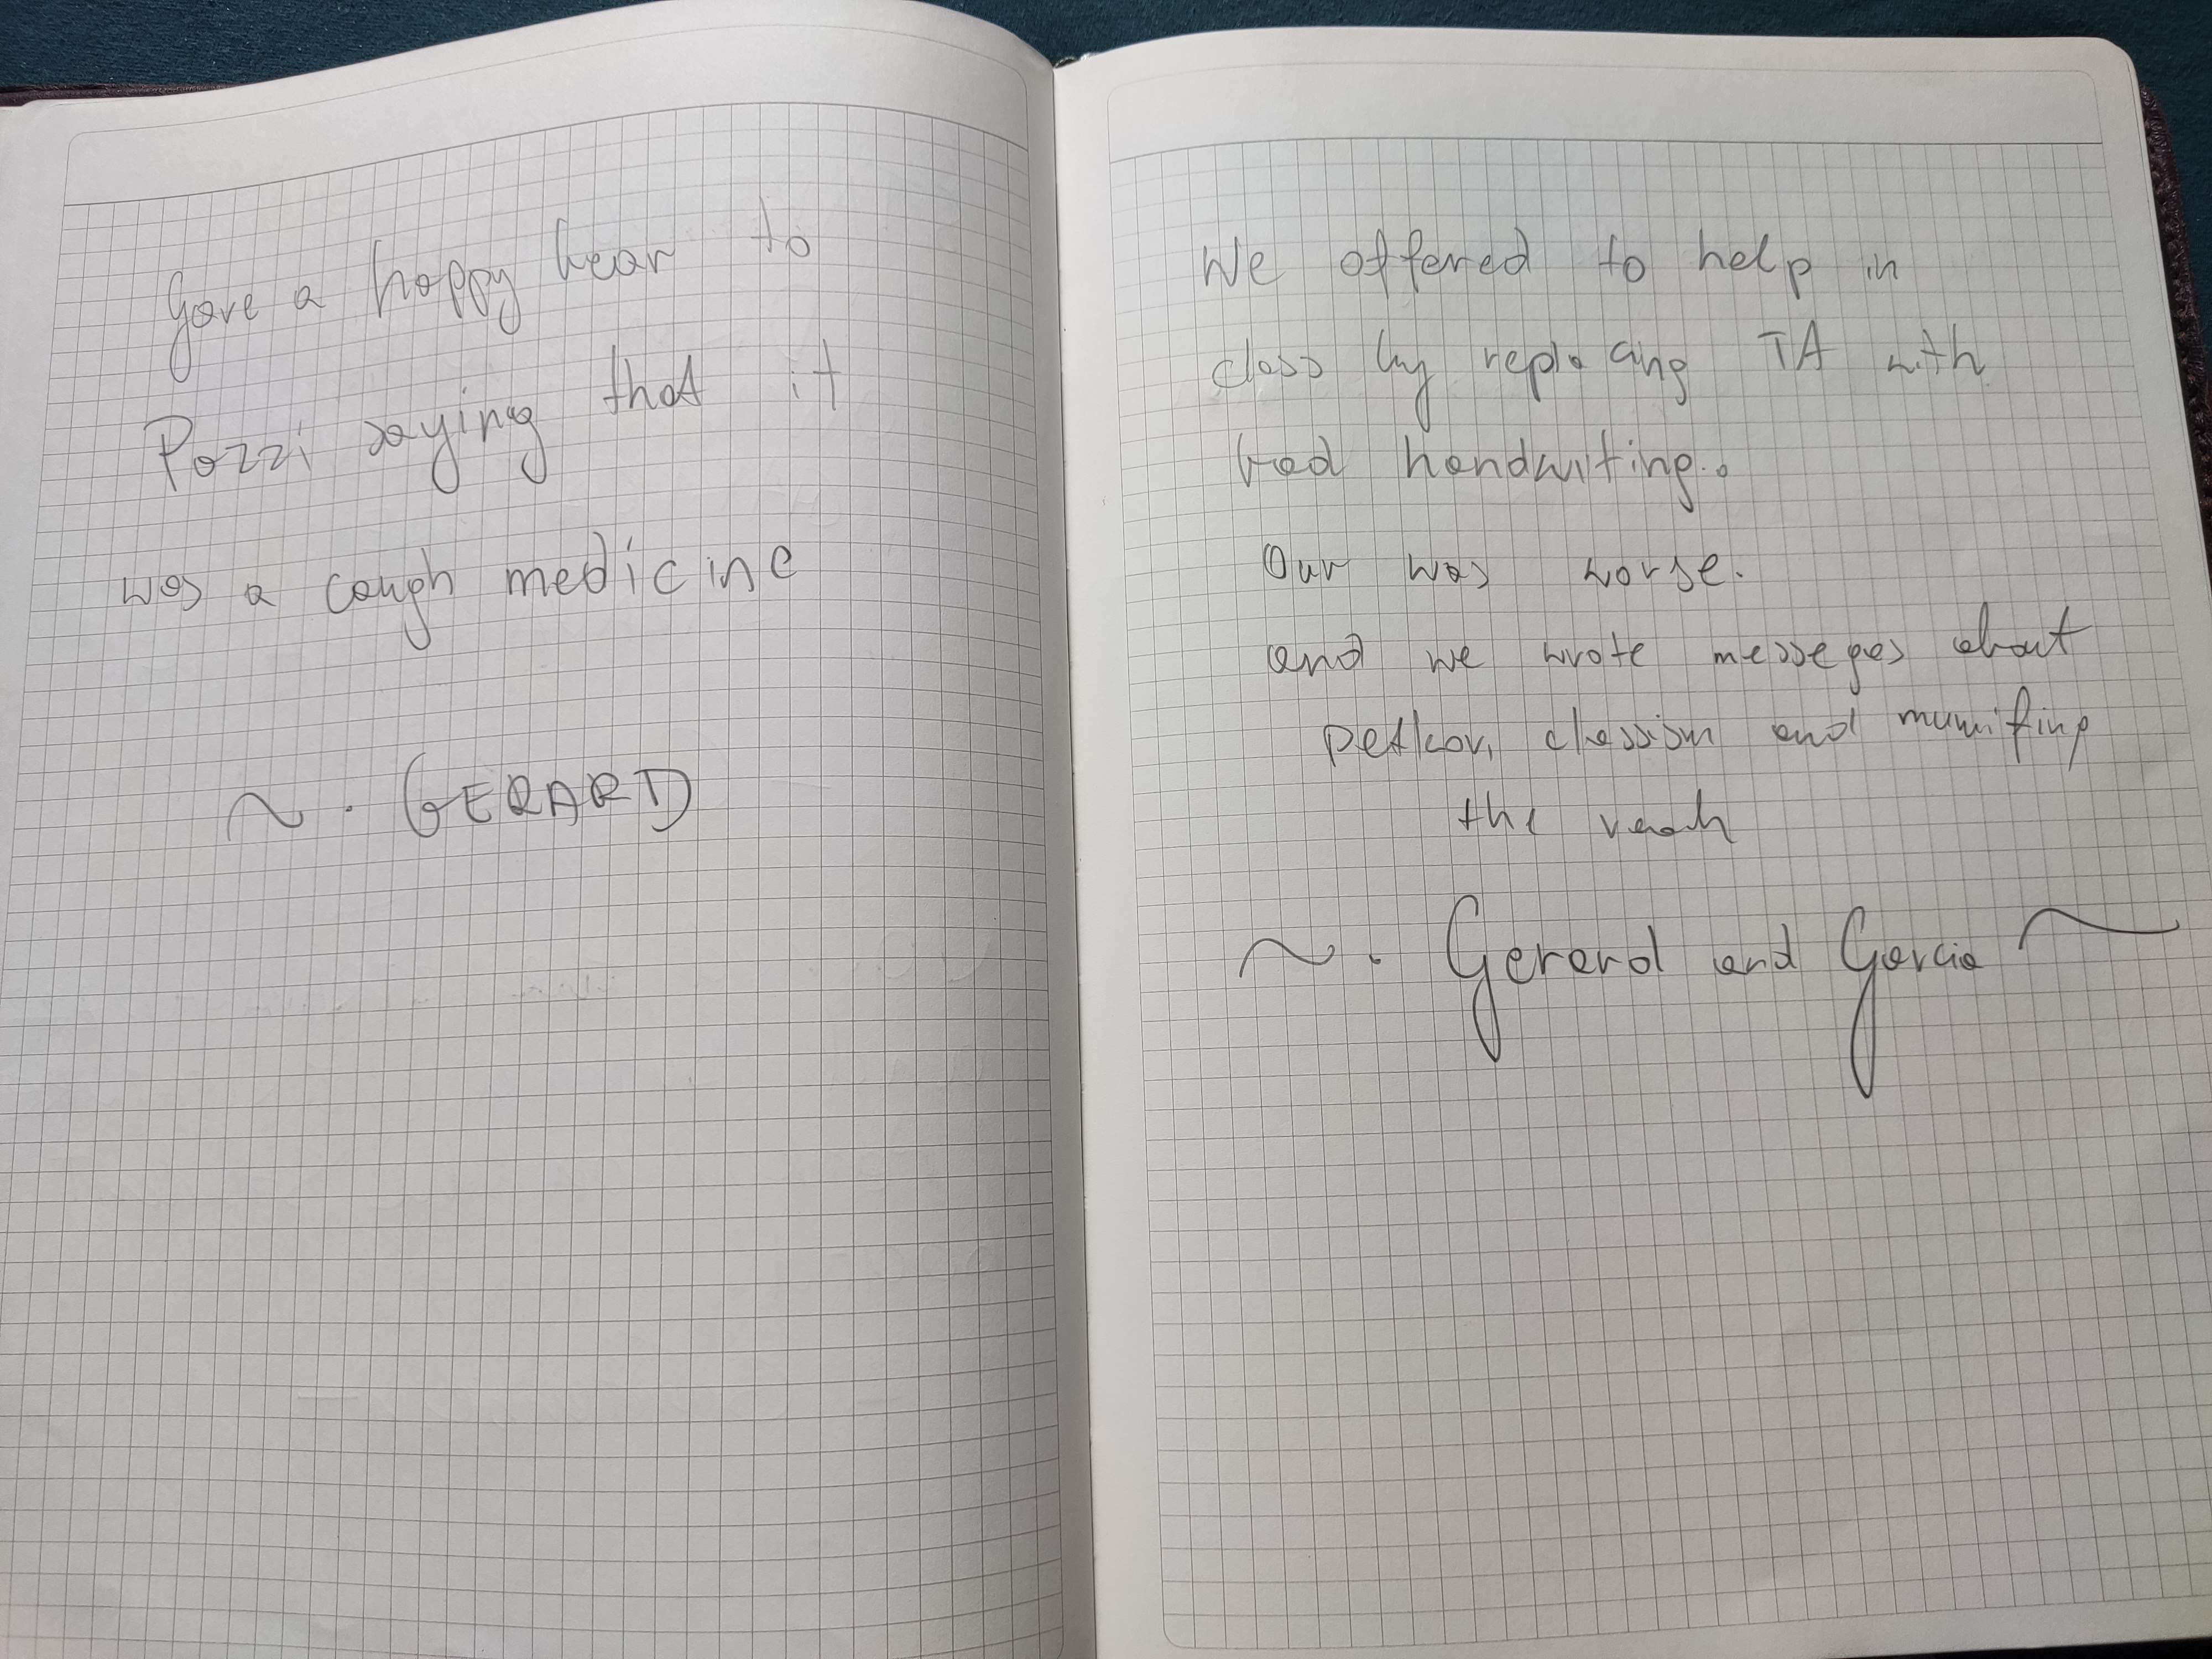 Gave a happy hear to
Pozzi saying that it
was a cough medicine
~. GERARD
We offered to help in
class by replacing TA with
bad handwiting.
Our was worse.
and we wrote messeges about
petkov, classism and mumifing
the
~. Gerard and Garcia ~